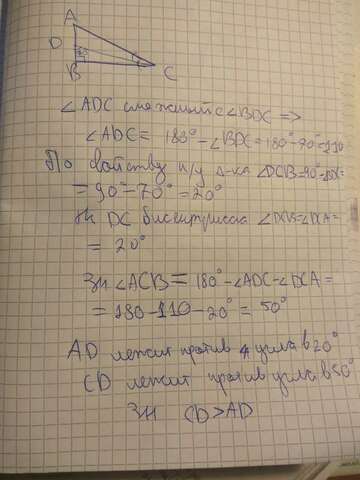 A
D
B
C
∠ADC смежный с ∠BDC =>
∠ADC = 180° - ∠BDC = 180° - 70° = 110
По свойству п/у Δ-ка ∠DCB = 90° -
= 90° - 70° = 20°
DC биссектрисса ∠DCB = ∠DCA =
= 20°
Зн ∠ACB = 180° - ∠ADC - ∠DCA =
= 180 - 110 - 20° = 50°
AD лежит против угла в 20°
CD лежит против угла в 50°
Зн CD > AD